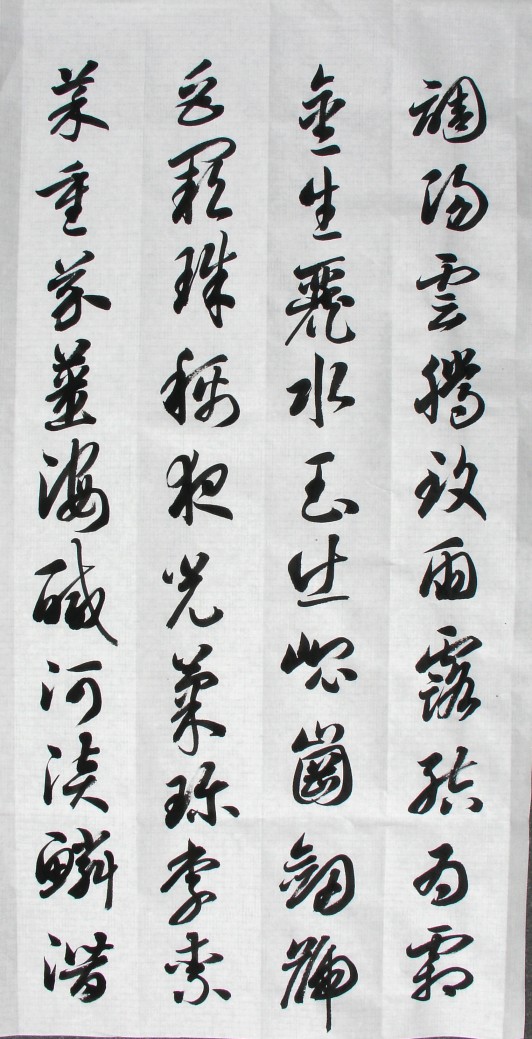 調陽雲騰致雨露結為霜
金生麗水玉出崐崗劍號
巨闕珠稱夜光菓珍李柰
菜重芥薑海醎河淡鱗潛